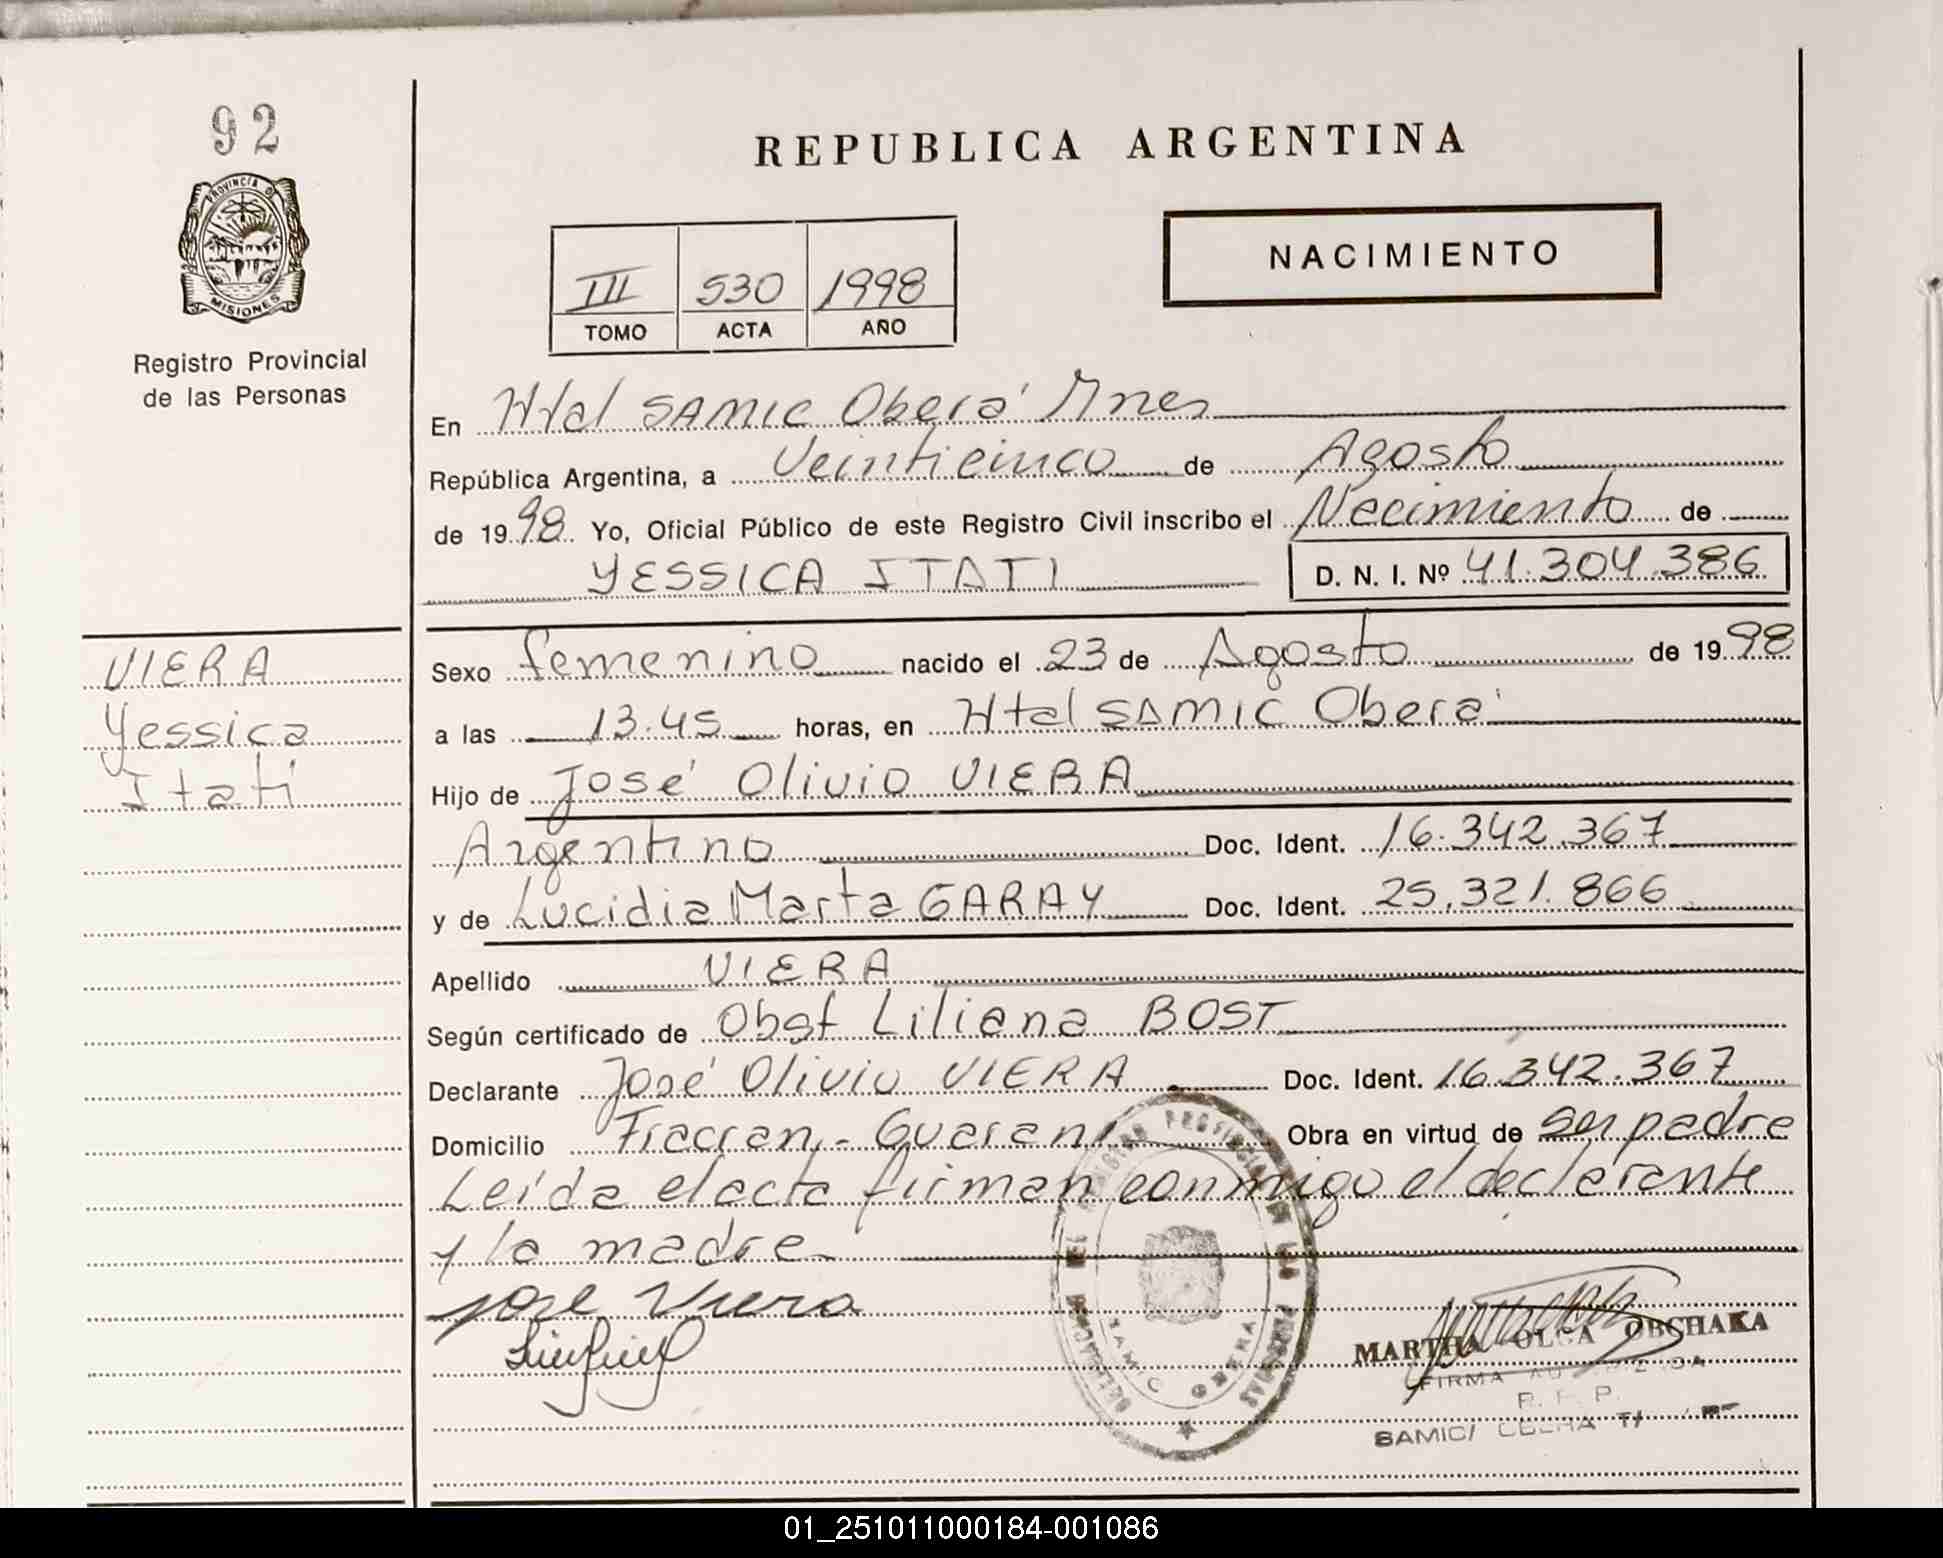 92
PROVINCIA D
MISIONES
Registro Provincial
de las Personas
REPUBLICA ARGENTINA
III 530 1998
TOMO ACTA AÑO
NACIMIENTO
En Htal SAMIC Oberá Mnes
República Argentina, a Veinticinco de Agosto
de 1998 Yo, Oficial Público de este Registro Civil inscribo el Nacimiento de
YESSICA ITATI D. N. I. Nº 41.304.386
VIERA
Yessica
Itatí
Sexo femenino nacido el 23 de Agosto de 1998
a las 13.45 horas, en Htal SAMIC Oberá
Hijo de José Olivio VIERA
Argentino Doc. Ident. 16.342.367
y de Lucidia Marta GARAY Doc. Ident. 25.321.866
Apellido VIERA
Según certificado de Obst Liliana BOST
Declarante José Olivio VIERA Doc. Ident. 16.342.367
Domicilio Fracran - Guaraní Obra en virtud de ser padre
Leída el acta firman conmigo el declarante
y la madre
José Viera
SAMIC OBERA
MARTHA OLGA OBSHAKA
FIRMA AUTORIZADA
SAMIC/
01_251011000184-001086